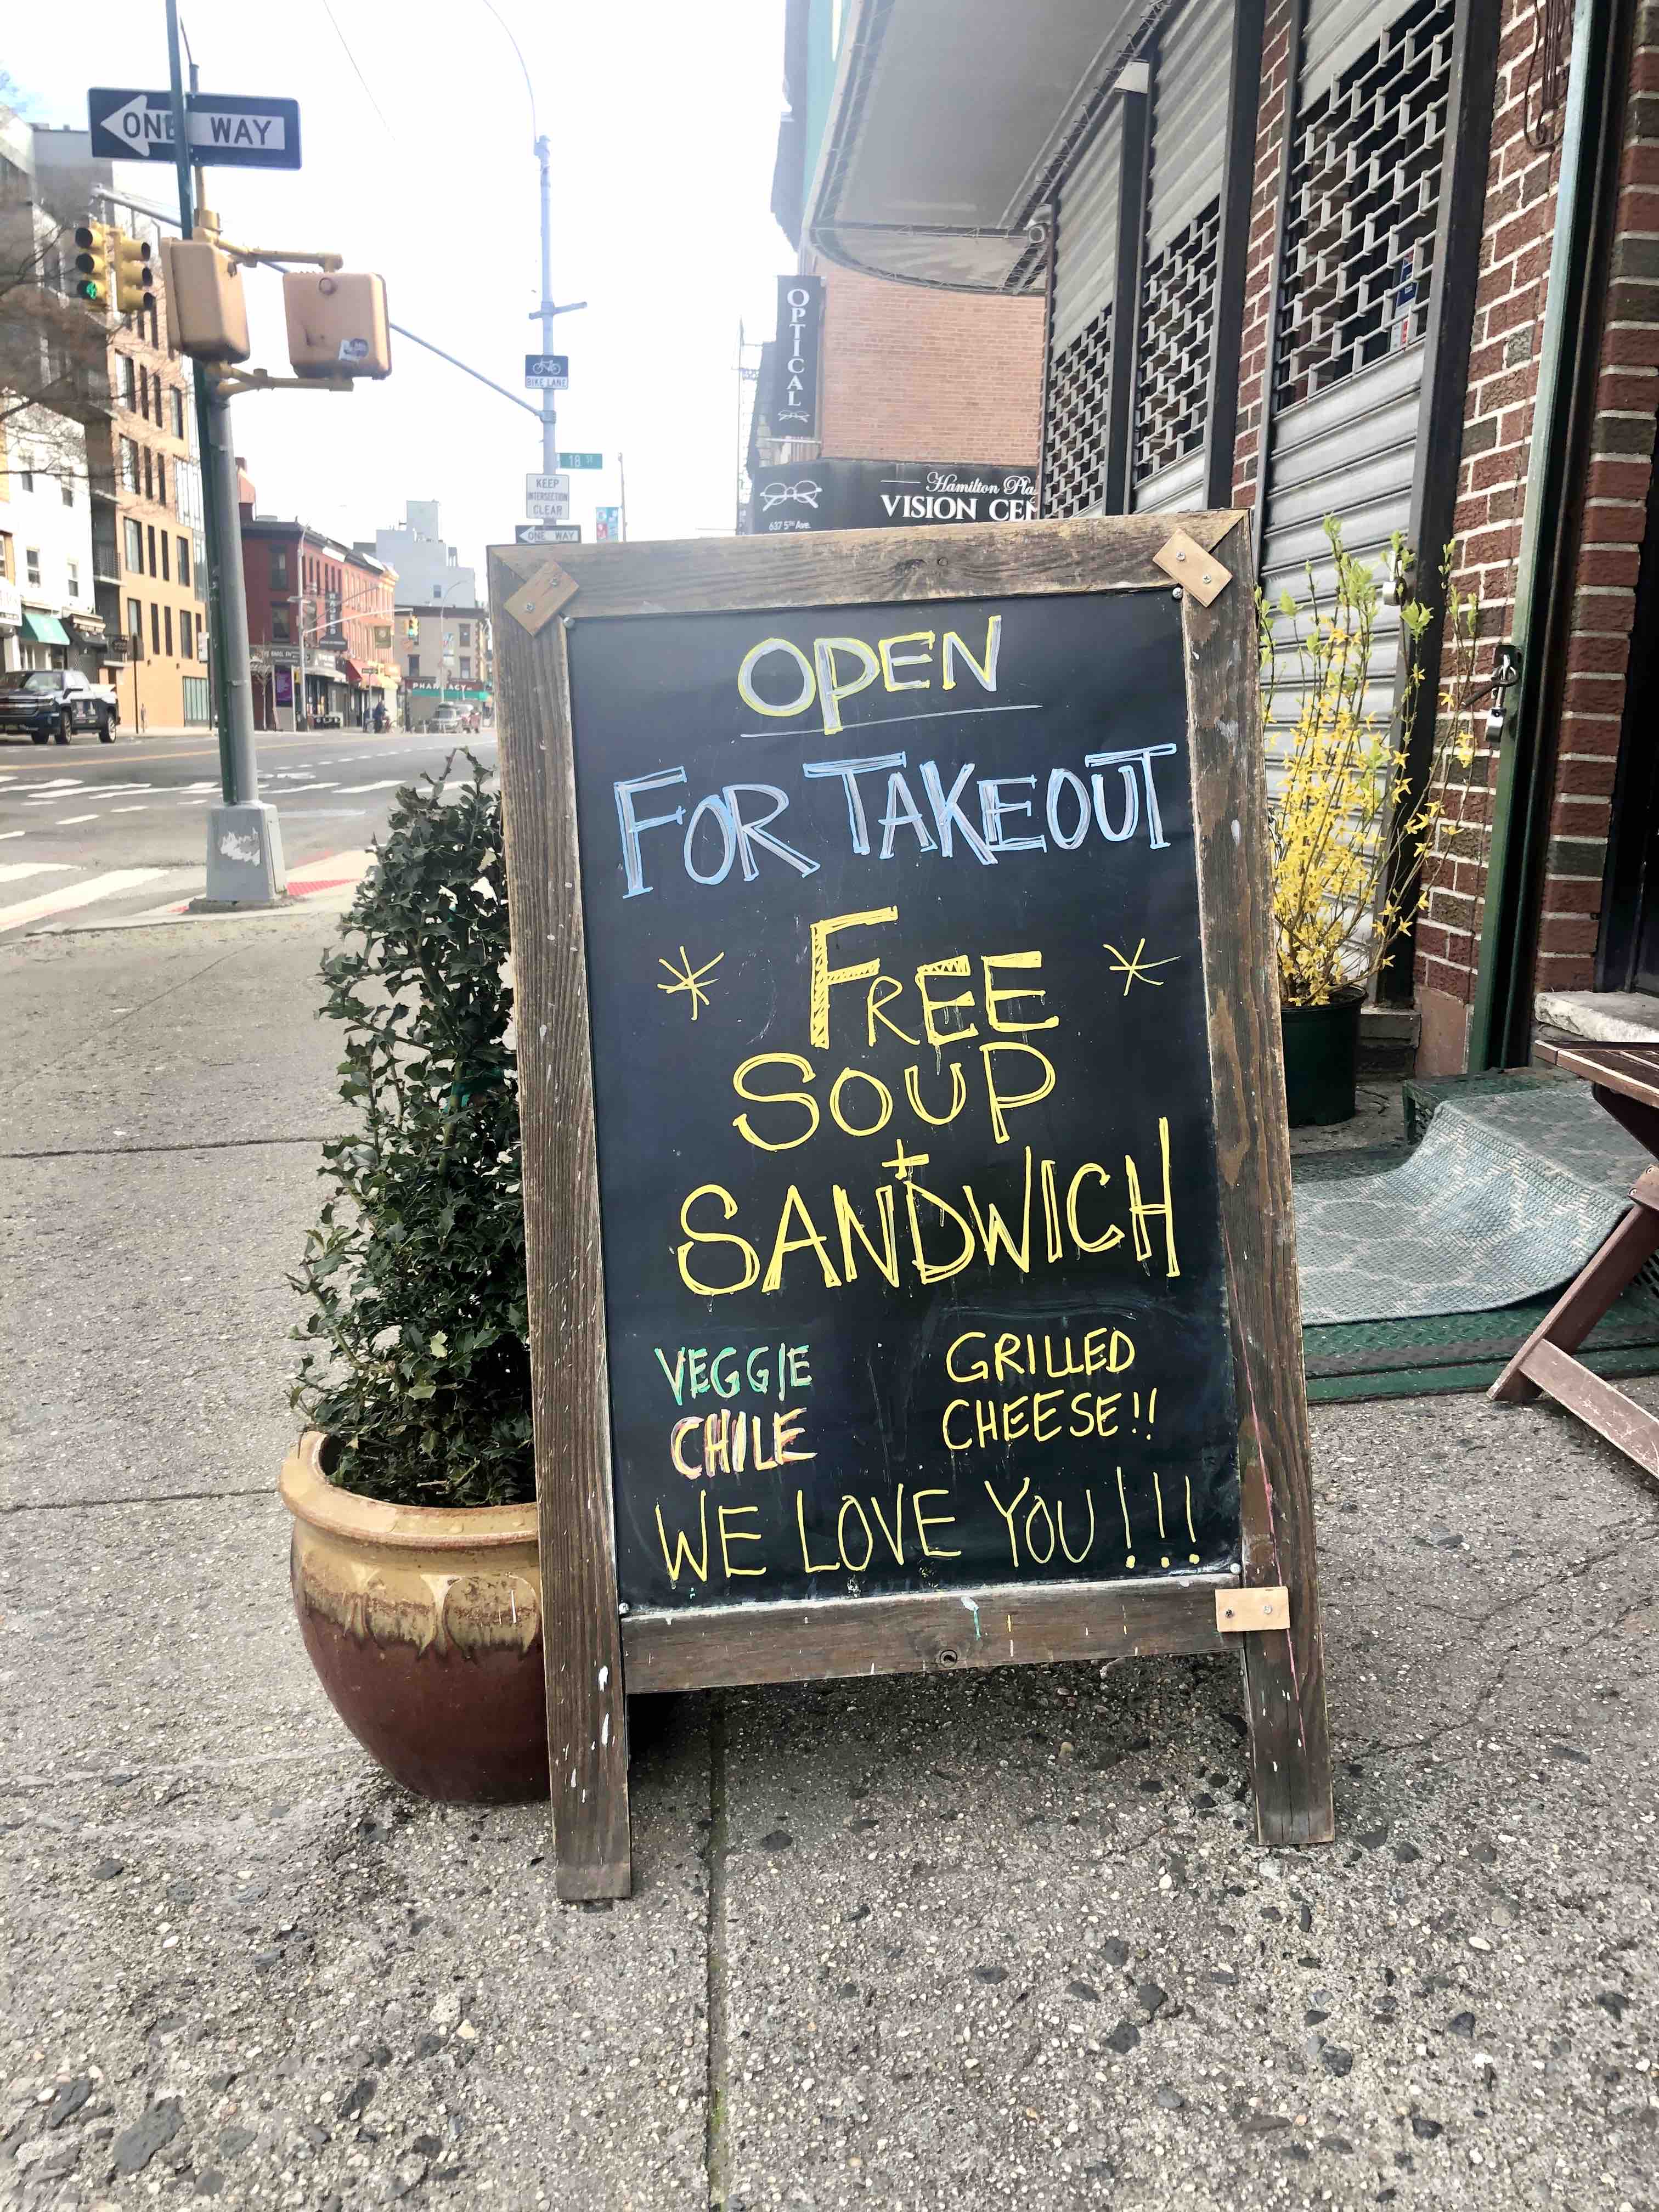 ONE WAY
BIKE LANE
18 ST
KEEP
INTERSECTION
CLEAR
ONE WAY
OPTICAL
Hamilton Pla
VISION CEN
637 5TH Ave.
PHARMACY
OPEN
FOR TAKEOUT
* FREE *
SOUP
+
SANDWICH
VEGGIE
CHILE
GRILLED
CHEESE!!
WE LOVE YOU!!!